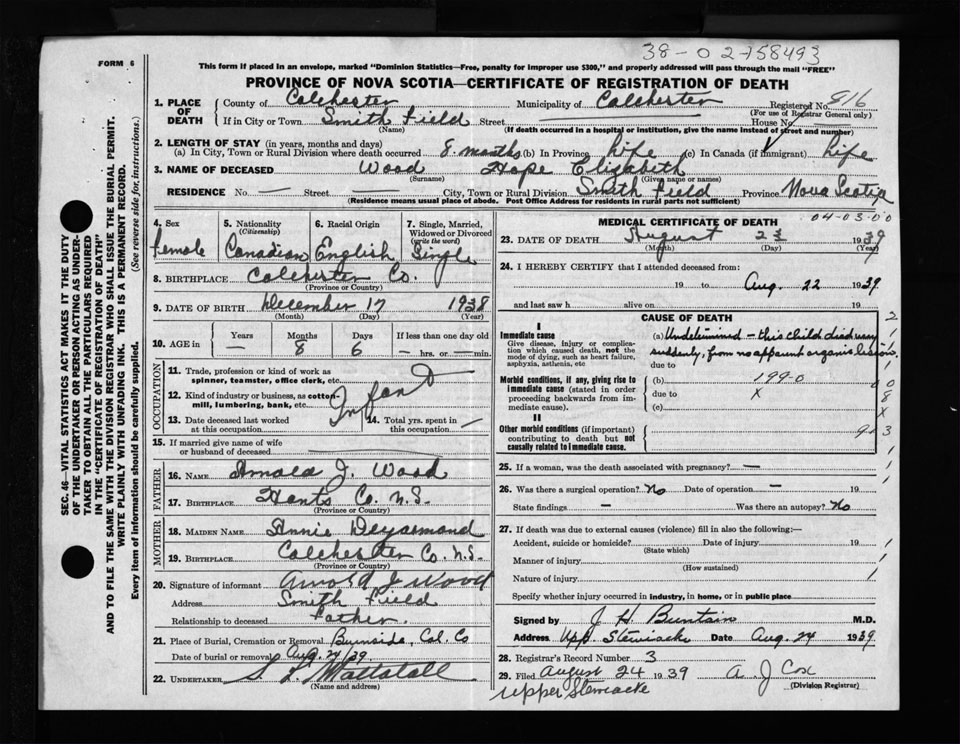 38-0 2-758493
FORM 6
This form if placed in an envelope, marked "Dominion Statistics—Free, penalty for improper use $300," and properly addressed will pass through the mail "FREE"
PROVINCE OF NOVA SCOTIA—CERTIFICATE OF REGISTRATION OF DEATH
1. PLACE OF DEATH County of Colchester Municipality of Colchester Registered No. 816
(For use of Registrar General only)
If in City or Town Smith Field Street House No.
(Name) (If death occurred in a hospital or institution, give the name instead of street and number)
2. LENGTH OF STAY (in years, months and days)
(a) In City, Town or Rural Division where death occurred 8 months (b) In Province life (c) In Canada (if immigrant) life
3. NAME OF DECEASED Wood Hope Elizabeth
(Surname) (Given name or names)
RESIDENCE No. — Street — City, Town or Rural Division Smith Field Province Nova Scotia
(Residence means usual place of abode. Post Office Address for residents in rural parts not sufficient)
4. Sex Female
5. Nationality (Citizenship) Canadian
6. Racial Origin English
7. Single, Married, Widowed or Divorced (write the word) Single
8. BIRTHPLACE Colchester Co.
(Province or Country)
9. DATE OF BIRTH December 17 1938
(Month) (Day) (Year)
10. AGE in Years — Months 8 Days 6 If less than one day old — hrs. or — min.
OCCUPATION
11. Trade, profession or kind of work as spinner, teamster, office clerk, etc.
12. Kind of industry or business, as cotton-mill, lumbering, bank, etc. Infant
13. Date deceased last worked at this occupation
14. Total yrs. spent in this occupation —
15. If married give name of wife or husband of deceased
FATHER
16. NAME Arnold J. Wood
17. BIRTHPLACE Hants Co. N.S.
(Province or Country)
MOTHER
18. MAIDEN NAME Annie Deyarmond
19. BIRTHPLACE Colchester Co. N.S.
(Province or Country)
20. Signature of informant Arnold J Wood
Address Smith Field
Relationship to deceased Father.
21. Place of Burial, Cremation or Removal Burnside, Col. Co
Date of burial or removal Aug. 24/39
22. UNDERTAKER
(Name and address)
MEDICAL CERTIFICATE OF DEATH
04-03-00
23. DATE OF DEATH August 23 1939
(Month) (Day) (Year)
24. I HEREBY CERTIFY that I attended deceased from:
19 to Aug. 22 1939
and last saw h alive on 19
CAUSE OF DEATH
I
Immediate cause
Give disease, injury or complication which caused death, not the mode of dying, such as heart failure, asphyxia, asthenia, etc
(a) Undetermined — this child died very suddenly, from no apparent organic lesion.
due to
Morbid conditions, if any, giving rise to immediate cause (stated in order proceeding backwards from immediate cause).
(b) 199-0
due to X
(c)
II
Other morbid conditions (if important) contributing to death but not causally related to immediate cause.
25. If a woman, was the death associated with pregnancy? —
26. Was there a surgical operation? No Date of operation — 19
State findings — Was there an autopsy? No
27. If death was due to external causes (violence) fill in also the following:—
Accident, suicide or homicide? Date of injury 19
(State which)
Manner of injury
(How sustained)
Nature of injury
Specify whether injury occurred in industry, in home, or in public place
Signed by J. H. Buntain M.D.
Address Upp. Stewiacke Date Aug. 24 1939
28. Registrar's Record Number 3
29. Filed August 24 1939 A. J Cox
(Division Registrar)
Upper Stewiacke
SEC. 46—VITAL STATISTICS ACT MAKES IT THE DUTY
OF THE UNDERTAKER OR PERSON ACTING AS UNDER-
TAKER TO OBTAIN ALL THE PARTICULARS REQUIRED
IN THE "CERTIFICATE OF REGISTRATION OF DEATH"
AND TO FILE THE SAME WITH THE DIVISION REGISTRAR WHO SHALL ISSUE THE BURIAL PERMIT.
WRITE PLAINLY WITH UNFADING INK. THIS IS A PERMANENT RECORD.
Every item of information should be carefully supplied. (See reverse side for instructions.)